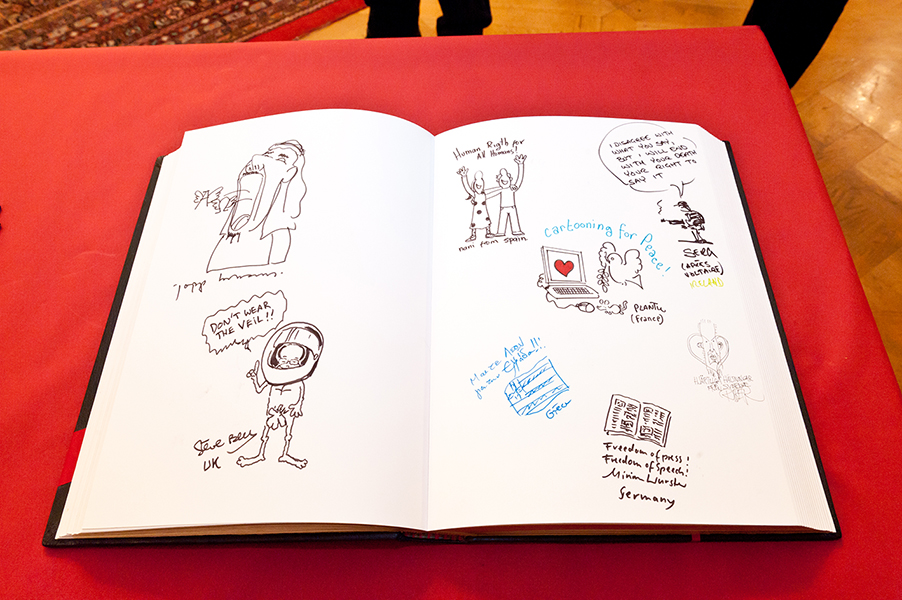 DON'T WEAR
THE VEIL!!
Steve Bell
UK
Human Rigth for
All Humans!
nani from Spain
I DISAGREE WITH
WHAT YOU SAY,
BUT I WILL END
WITH YOUR DEATH
YOUR RIGHT TO
SAY IT
SERA
(APRÈS
VOLTAIRE)
cartooning for Peace!
PLANTU
(France)
Freedom of press!
Freedom of Speech!
Germany